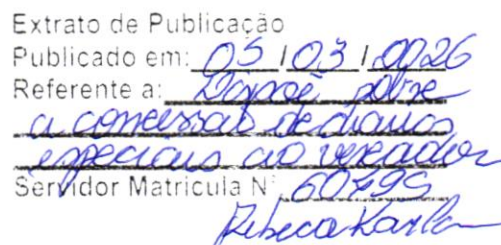 Extrato de Publicação
Publicado em: 05 / 03 / 0026
Referente a: Dispoẽ sobre
a concessão de diarias
especiais ao vereador
Servidor Matricula N° 60799
Rebeca Karla